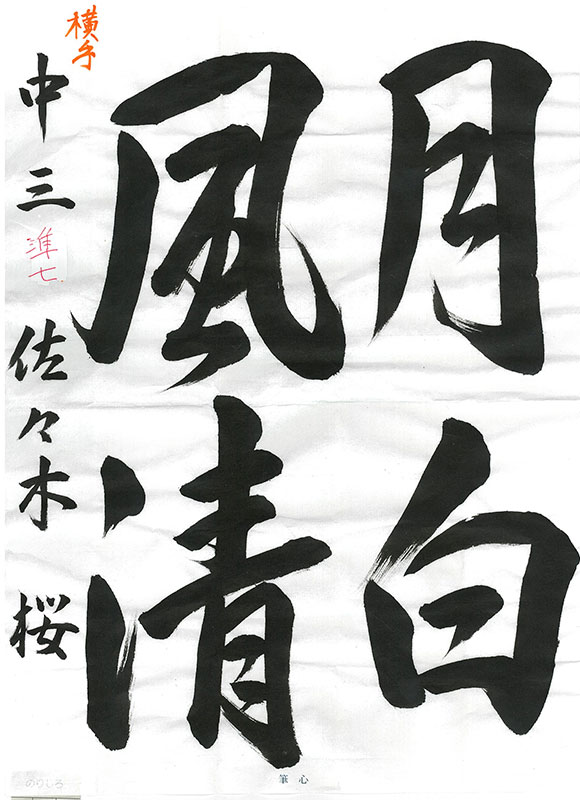 月白
風清
横手
中三
準七
佐々木 桜
筆心
のりしろ